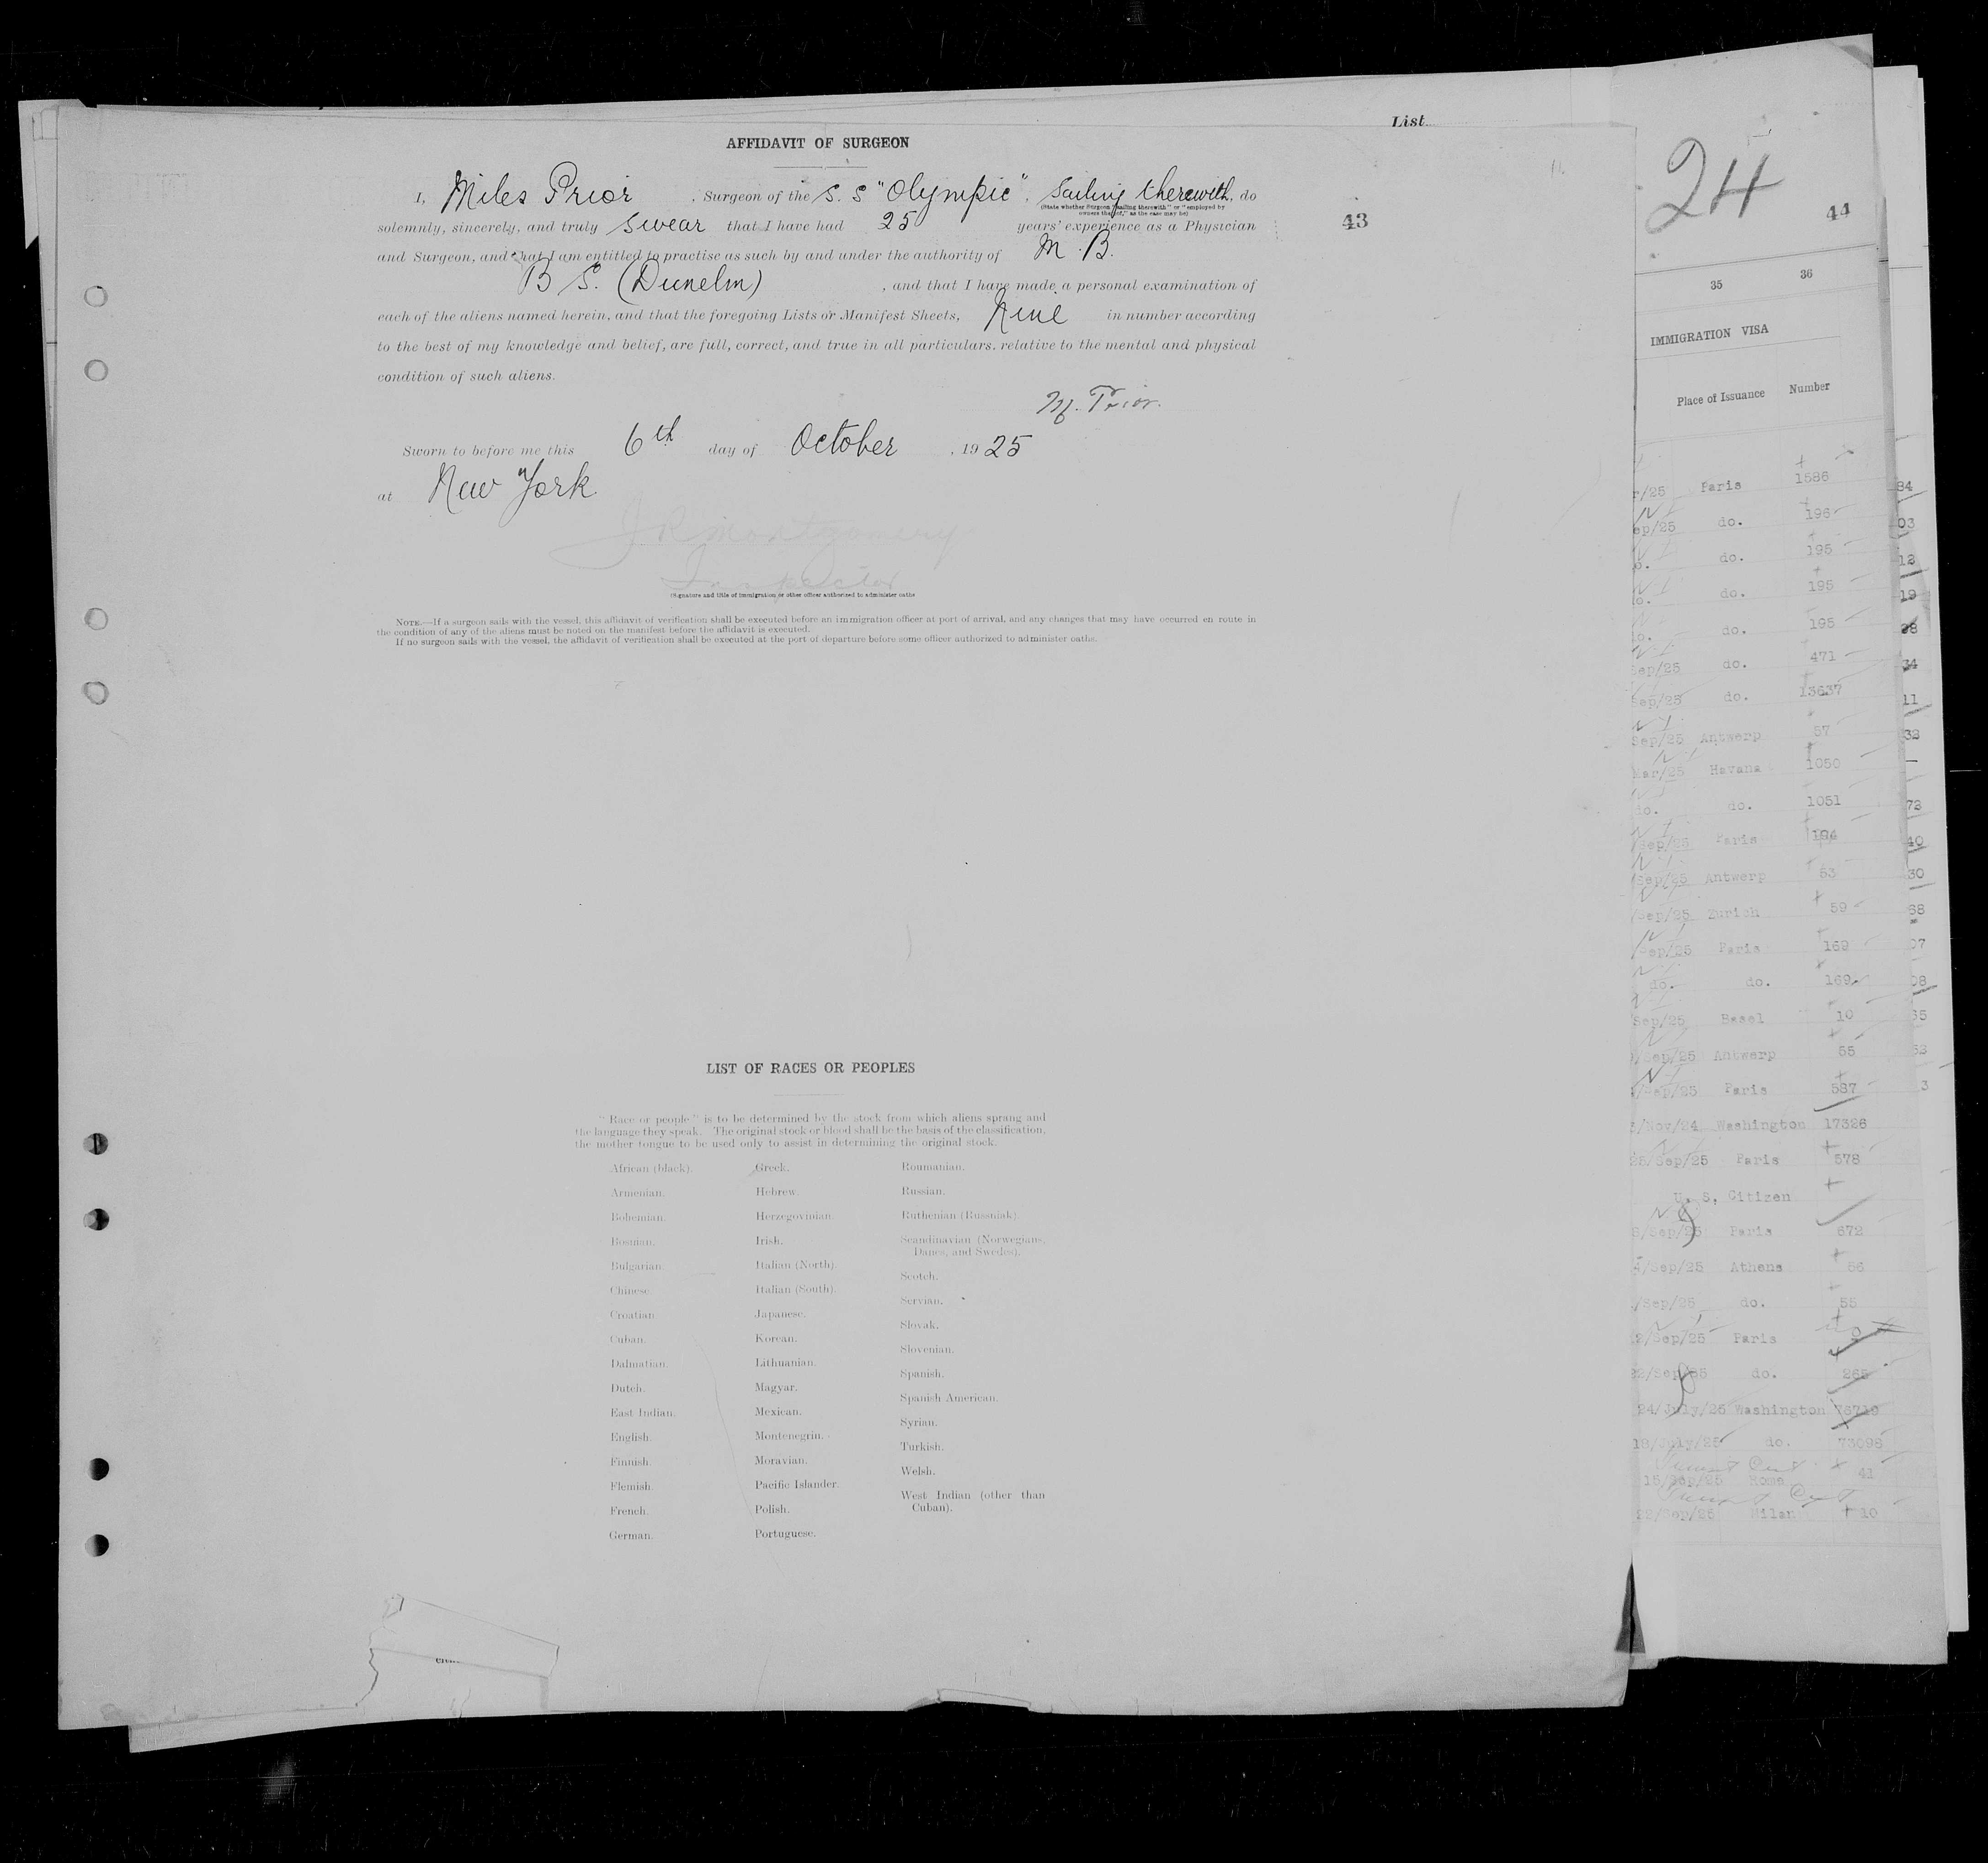 List
AFFIDAVIT OF SURGEON
I, Miles Prior, Surgeon of the S. S "Olympic", Sailing therewith, do
(State whether Surgeon "sailing therewith" or "employed by
owners thereof," as the case may be)
solemnly, sincerely, and truly swear that I have had 25 years' experience as a Physician
and Surgeon, and that I am entitled to practise as such by and under the authority of M. B.
B S. (Dunelm), and that I have made a personal examination of
each of the aliens named herein, and that the foregoing Lists or Manifest Sheets, Nine in number according
to the best of my knowledge and belief, are full, correct, and true in all particulars. relative to the mental and physical
condition of such aliens.
M. Prior.
Sworn to before me this 6th day of October, 1925
at New York
J R Montgomery
Inspector
(Signature and title of immigration or other officer authorized to administer oaths
NOTE.—If a surgeon sails with the vessel, this affidavit of verification shall be executed before an immigration officer at port of arrival, and any changes that may have occurred en route in
the condition of any of the aliens must be noted on the manifest before the affidavit is executed.
If no surgeon sails with the vessel, the affidavit of verification shall be executed at the port of departure before some officer authorized to administer oaths.
43
LIST OF RACES OR PEOPLES
"Race or people" is to be determined by the stock from which aliens sprang and
the language they speak. The original stock or blood shall be the basis of the classification,
the mother tongue to be used only to assist in determining the original stock.
African (black).
Armenian.
Bohemian.
Bosnian.
Bulgarian.
Chinese.
Croatian
Cuban.
Dalmatian.
Dutch.
East Indian.
English.
Finnish.
Flemish.
French.
German.
Greek.
Hebrew.
Herzegovinian.
Irish.
Italian (North).
Italian (South).
Japanese.
Korean.
Lithuanian.
Magyar.
Mexican.
Montenegrin.
Moravian.
Pacific Islander.
Polish.
Portuguese.
Roumanian.
Russian.
Ruthenian (Russniak).
Scandinavian (Norwegians,
Danes, and Swedes).
Scotch.
Servian.
Slovak.
Slovenian.
Spanish.
Spanish American.
Syrian.
Turkish.
Welsh.
West Indian (other than
Cuban).
24
44
35 36
IMMIGRATION VISA
Place of Issuance Number
/25 Paris 1586
ep/25 do. 196
o. do. 195
o. do. 195
o. do. 195
Sep/25 do. 471
Sep/25 do. 13637
Sep/25 Antwerp 57
Mar/25 Havana 1050
do. do. 1051
/Sep/25 Paris 194
/Sep/25 Antwerp 53
/Sep/25 Zurich 59
/Sep/25 Paris 169
do. do. 169
/Sep/25 Basel 10
/Sep/25 Antwerp 55
/Sep/25 Paris 587
/Nov/24 Washington 17326
25/Sep/25 Paris 578
U. S. Citizen
/Sep/25 Paris 672
/Sep/25 Athens 56
/Sep/25 do. 55
/Sep/25 Paris
22/Sep/25 do. 265
24/July/25 Washington 76719
18/July/25 do. 73098
15/Sep/25 Rome 41
22/Sep/25 Milan 10
84
03
13
19
28
34
11
32
73
40
30
68
07
08
35
53
3